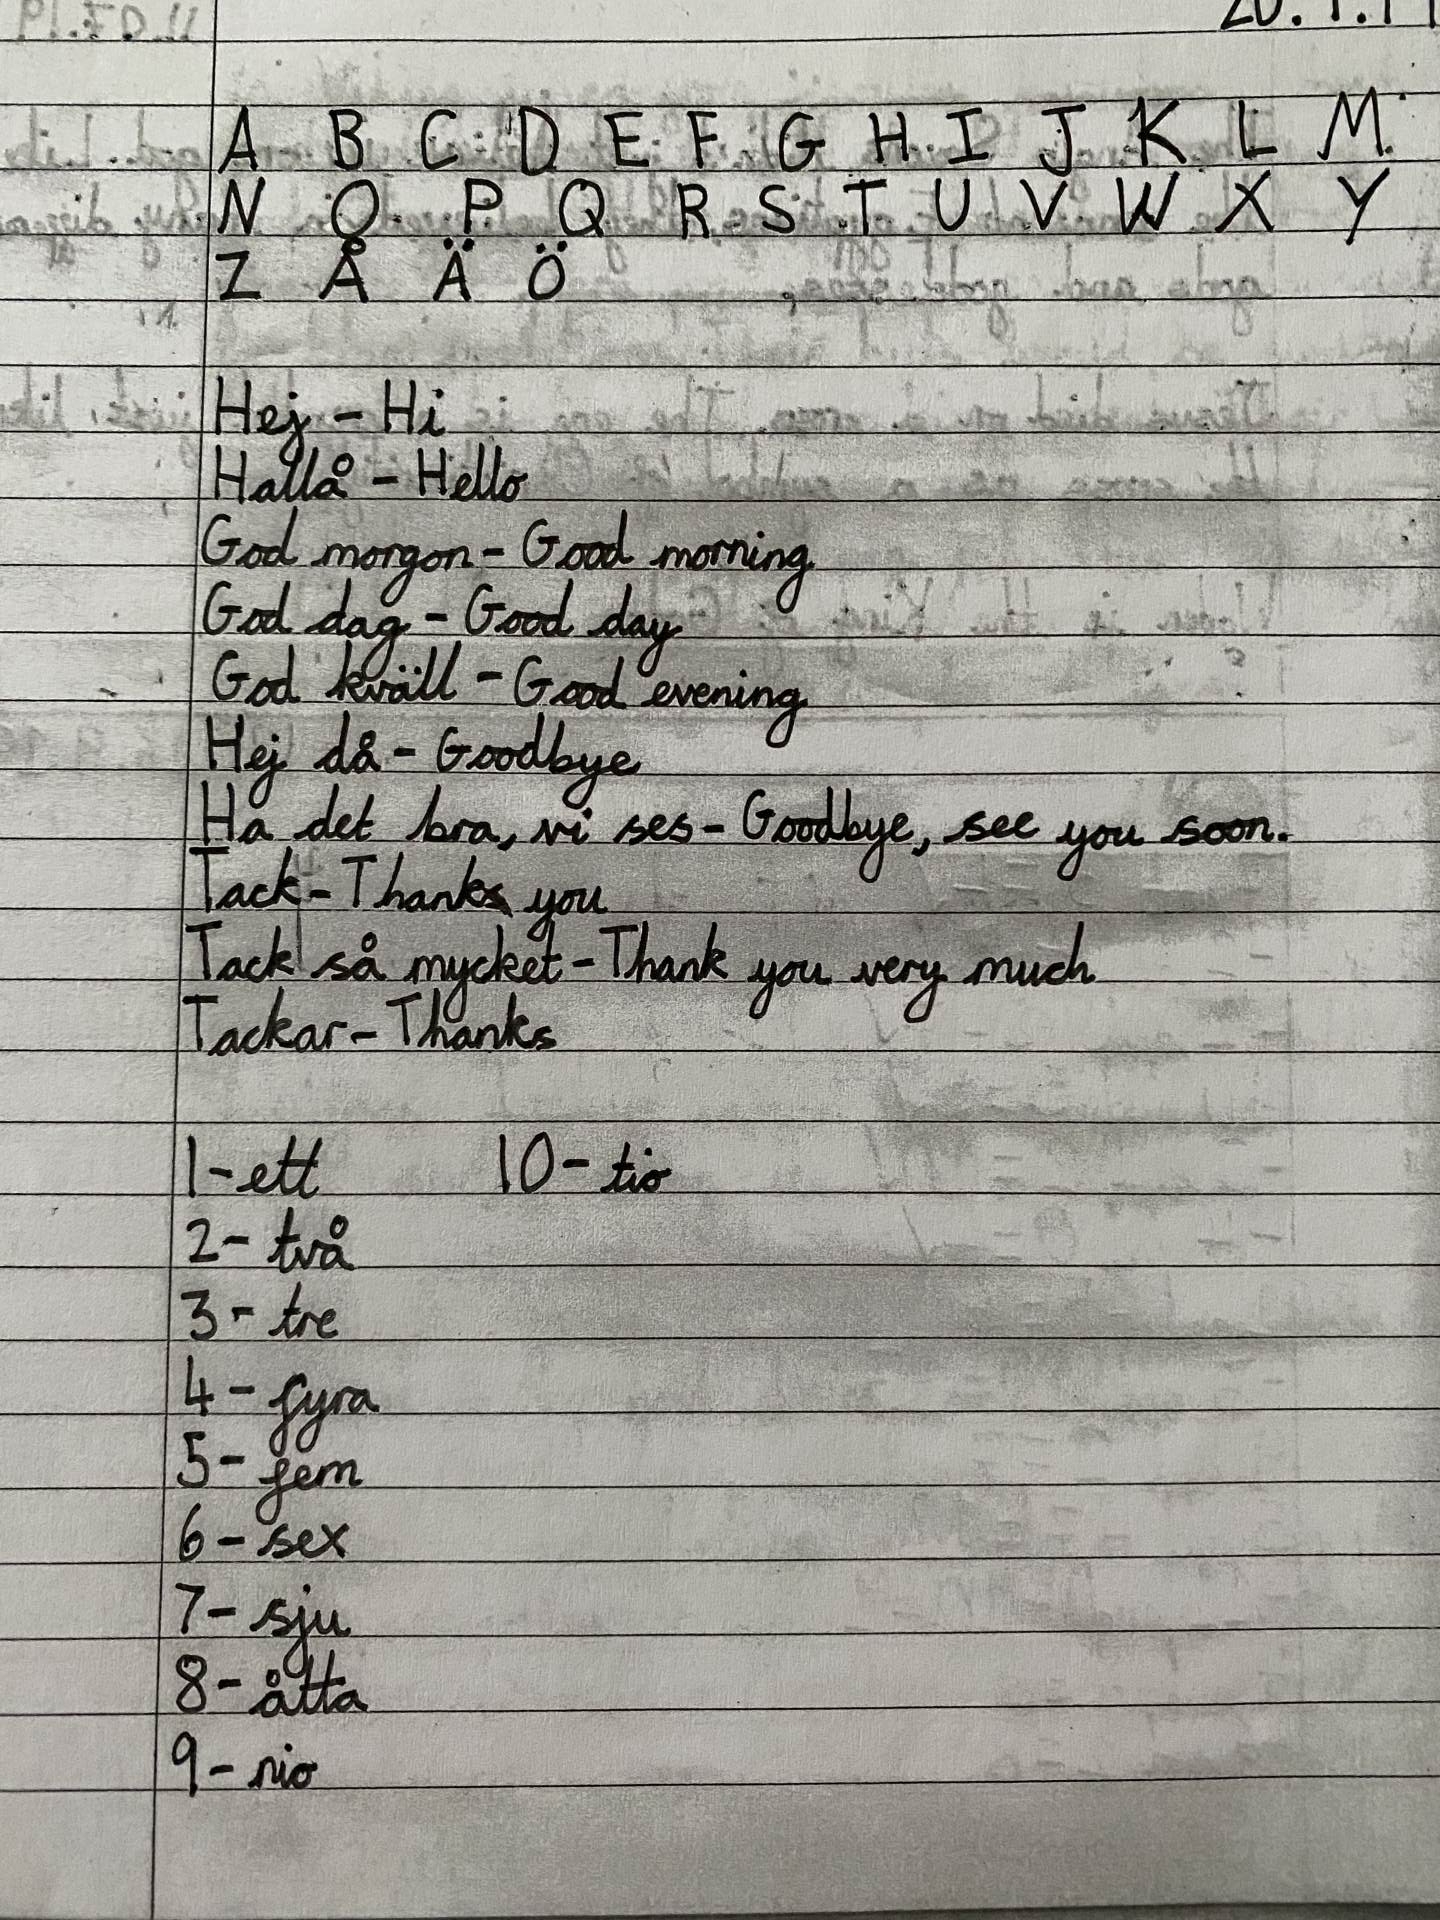 A B C D E F G H I J K L M
N O P Q R S T U V W X Y
Z Å Ä Ö
Hej - Hi
Hallå - Hello
God morgon - Good morning
God dag - Good day
God kväll - Good evening
Hej då - Goodbye
Ha det bra, vi ses - Goodbye, see you soon.
Tack - Thanks you
Tack så mycket - Thank you very much
Tackar - Thanks
1 - ett 10 - tio
2 - två
3 - tre
4 - fyra
5 - fem
6 - sex
7 - sju
8 - åtta
9 - nio